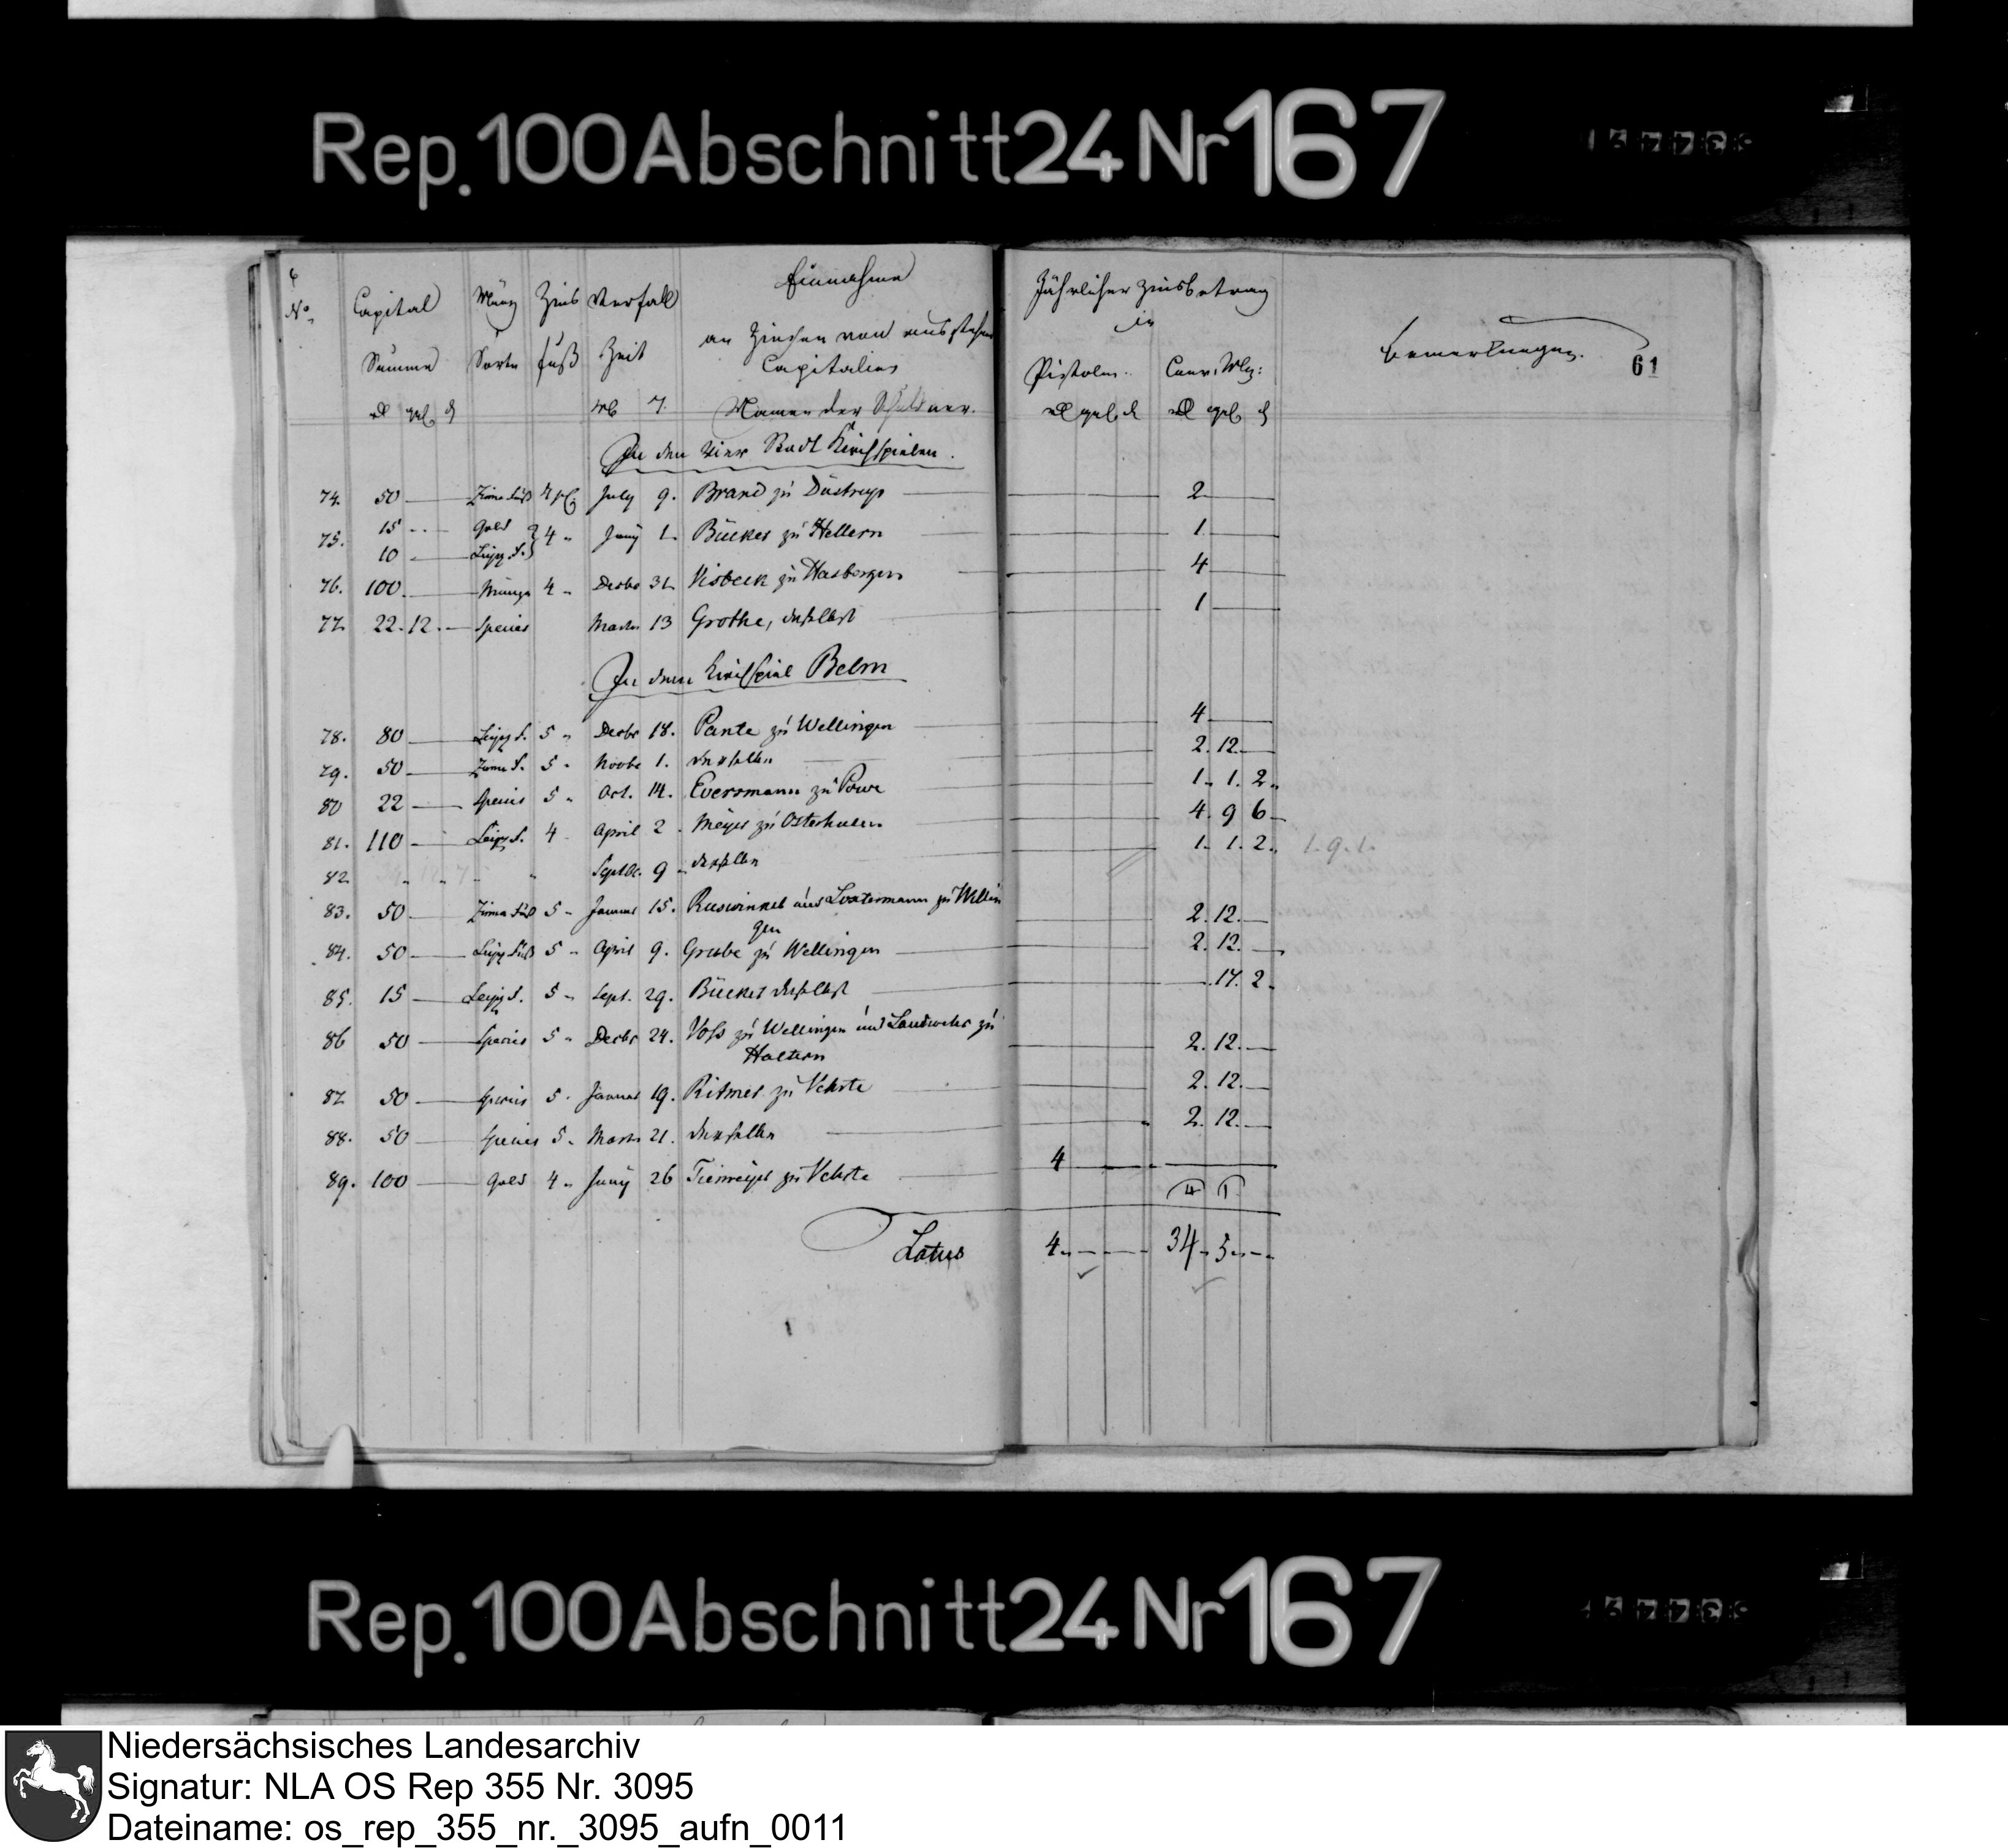 Rep. 100 Abschnitt 24 Nr 167
No.
Capital
Münz
Zins
Verfall
Einnahme
Summe
Sorte
fuß
Zeit
an Zinsen von ausstehen
Capitalien
Namen der Schuldner.
Jährlicher Zinsbetrag
in
Pistolen.
Conv. Mz:
Bemerkungen.
61
In den vier Stadt Kirchspielen.
74. 50 July 9. Brand zu Düstrup 2
75. 15 Gold 4 Juny 1. Bücker zu Hellern 1
10 Leipz. F.
76. 100 Münze 4 Decbr 31. Visbeck zu Hasbergen 4
77. 22. 12. Species Martz 13 Grothe, daselbst 1
In dem Kirchspiel Belm
78. 80 Leipz. F. 5 Decbr 18. Pante zu Wellingen 4
79. 50 5 Novbr 1. derselbe 2. 12.
80 22 Species 5 Oct. 14. Eversmann zu Powe 1. 1. 2.
81. 110 Leipz. F. 4 April 2. Meyer zu Osterhulen 4. 9 6
82 Septbr. 9 derselbe 1. 1. 2. 1. 9. 1.
83. 50 5 Januar 15. zu Wellin 2. 12.
gen
84. 50 Leipz. Fuß 5 April 9. Grube zu Wellingen 2. 12.
85. 15 Leipz. F. 5 Sept. 29. Bücker daselbst 17. 2.
86 50 Species 5 Decbr 24. Voss zu Wellingen und Landwehr zu 2. 12.
Haltern
87 50 Species 5 Januar 19. Ritmer zu Vehrte 2. 12.
88. 50 Species 5 Martz 21. derselbe 2. 12.
89. 100 Gold 4 Juny 26 Tiemeyer zu Vehrte 4
4 1
Latus 4 34 5
Rep. 100 Abschnitt 24 Nr 167
Niedersächsisches Landesarchiv
Signatur: NLA OS Rep 355 Nr. 3095
Dateiname: os_rep_355_nr._3095_aufn_0011